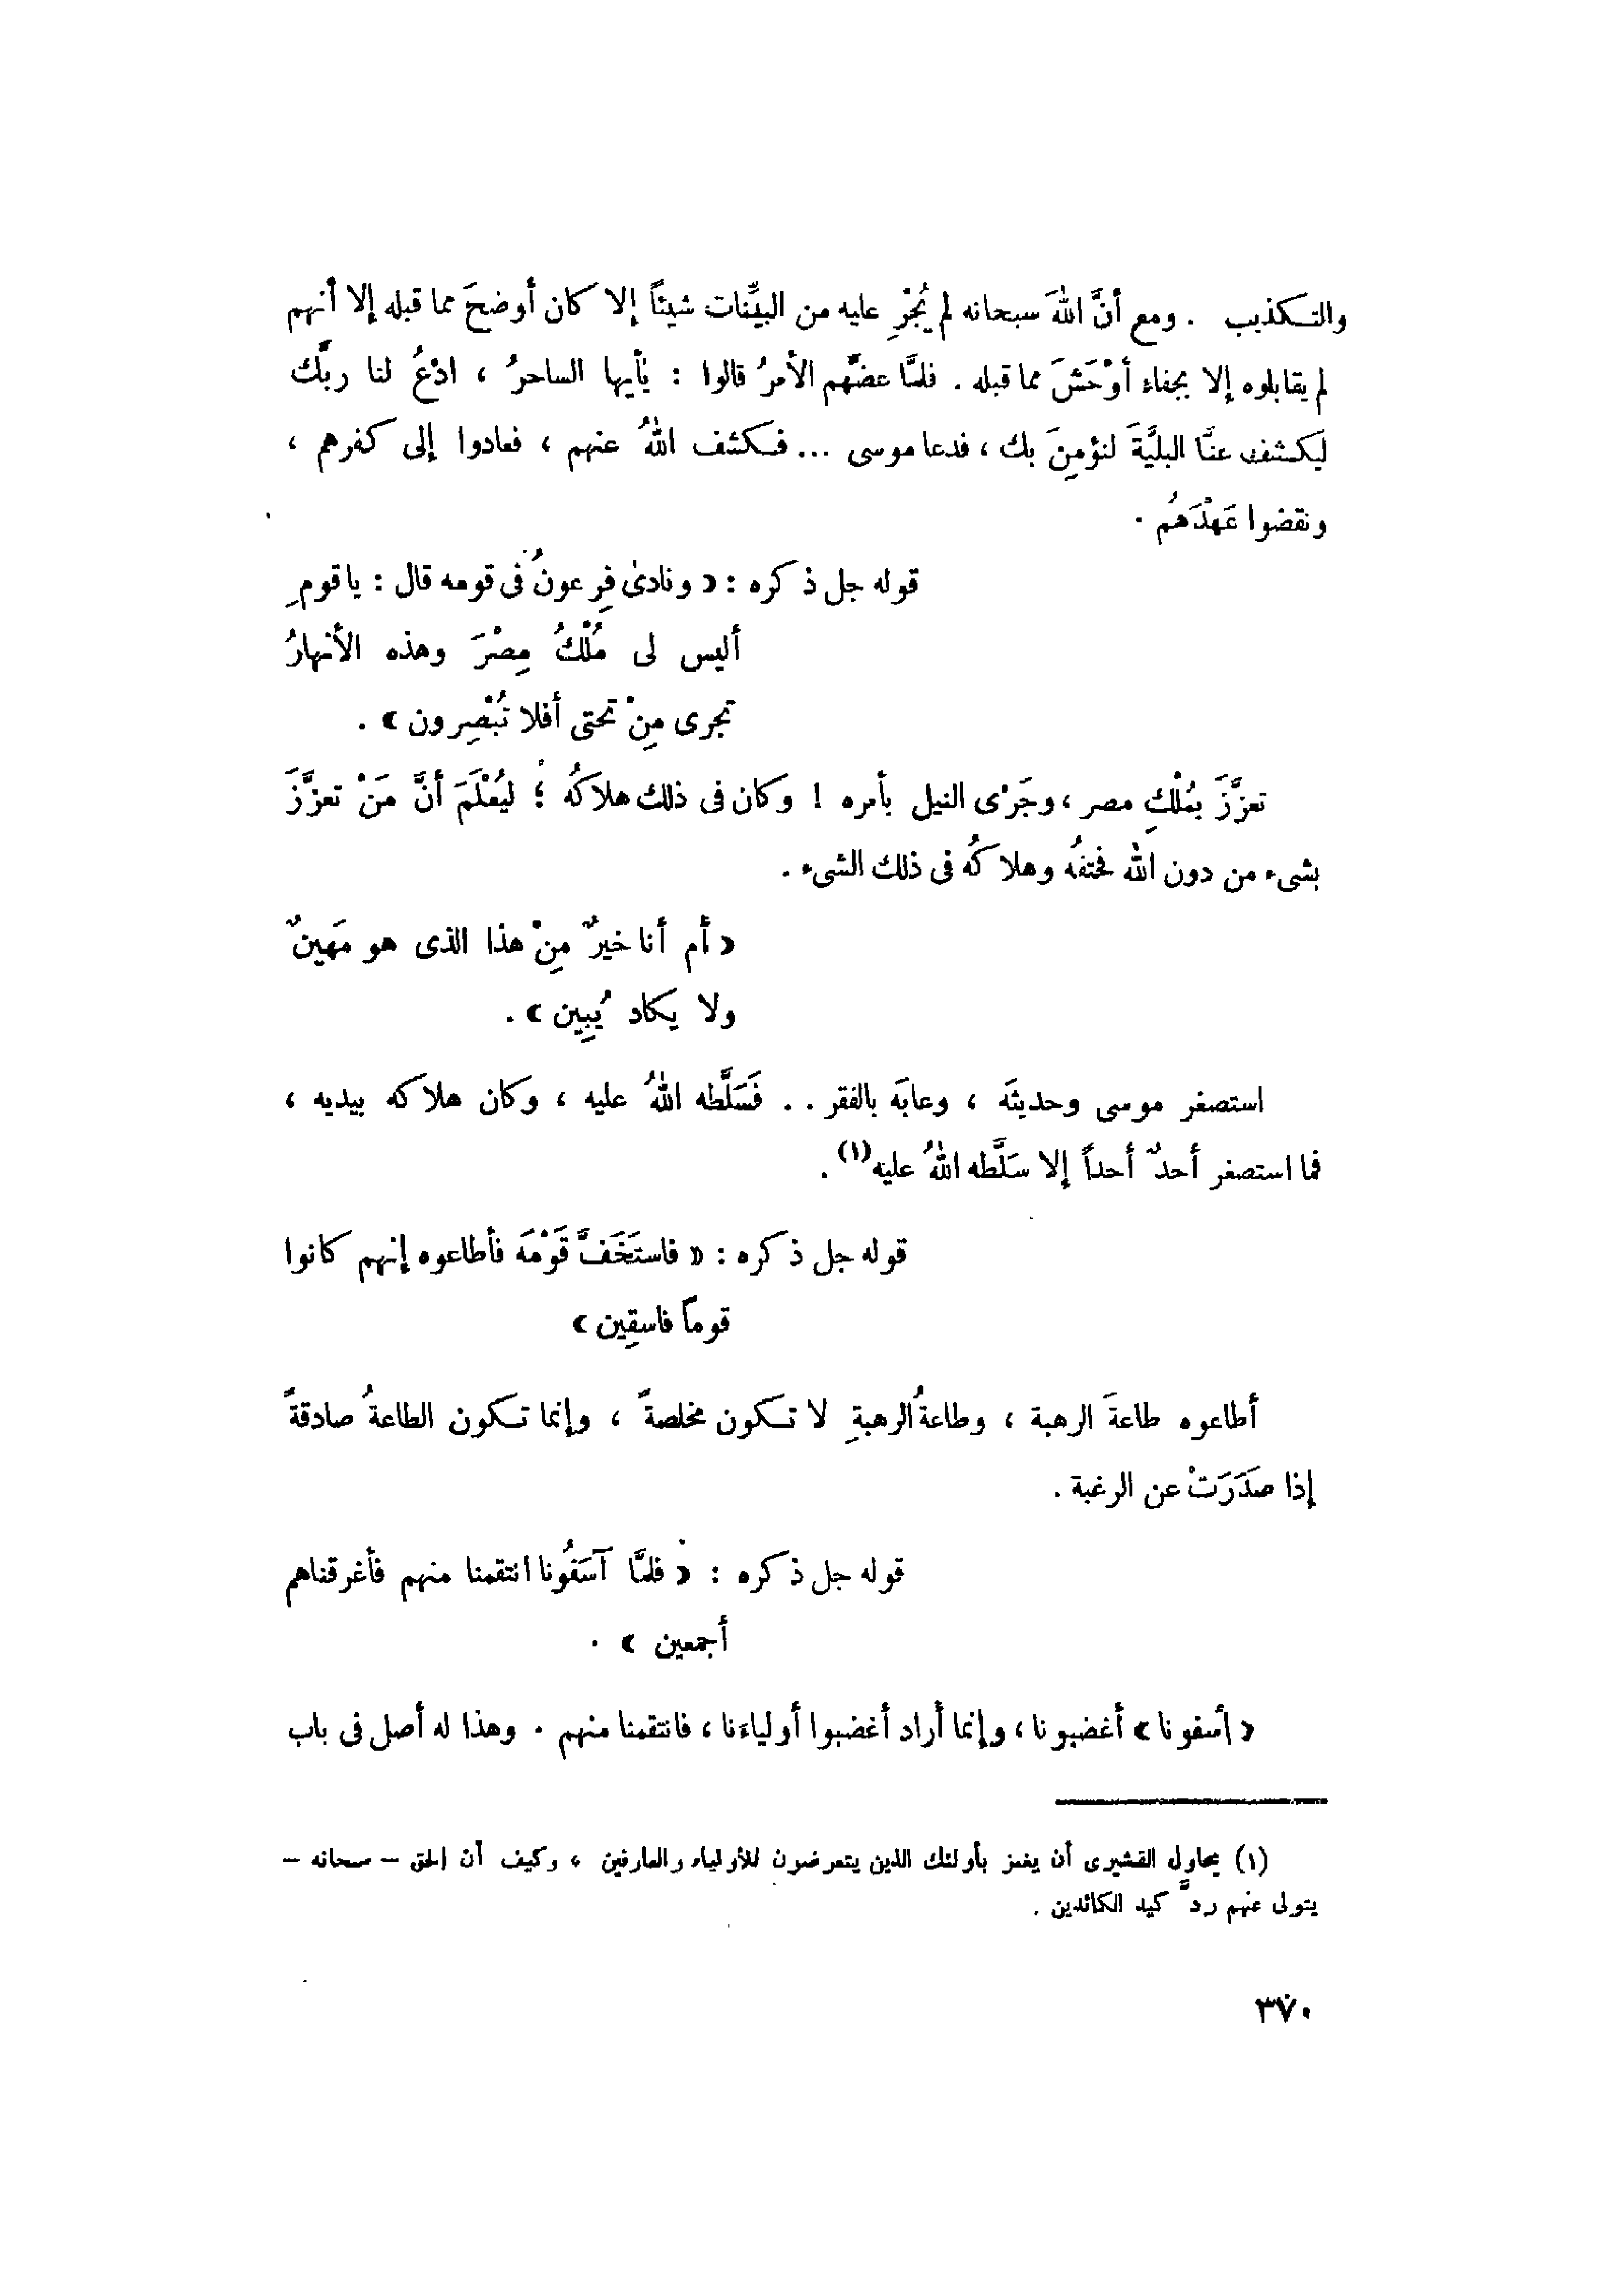 والتكذيب . ومع أنَّ اللهَ سبحانه لم يُجْرِ عليه من البيِّنات شيئاً إلا كان أوضحَ مما قبله إلا أنهم
لم يقابلوه إلا بجفاء أوْحَشَ مما قبله . فلمَّا عضَّهم الأمرُ قالوا : يٰأيها الساحرُ ، ادْعُ لنا ربَّك
ليكشف عنَّا البليَّةَ لنؤمنَ بك ، فدعا موسى ... فكشف اللهُ عنهم ، فعادوا إلى كفرهم ،
ونقضوا عَهْدَهُم .
قوله جل ذكره : « ونادىٰ فِرعونُ فى قومه قال : ياقومِ
أليس لى مُلْكُ مِصْرَ وهذه الأنهارُ
تجرى مِنْ تحتى أفلا تُبْصِرون » .
تعزَّزَ بمُلْكِ مصر ، وجَرْى النيل بأمره ! وكان فى ذلك هلاكُه ؛ ليُعْلَمَ أنَّ مَنْ تعزَّزَ
بشىء من دون الله فحتفُه وهلاكُه فى ذلك الشىء .
« أم أنا خيرٌ مِنْ هذا الذى هو مَهينٌ
ولا يكاد يُبِين » .
استصغر موسى وحديثَه ، وعابَه بالفقر . . فَسَلَّطه اللهُ عليه ، وكان هلاكه بيديه ،
فما استصغر أحدٌ أحداً إلا سَلَّطه اللهُ عليه(١) .
قوله جل ذكره : « فاستَخَفَّ قَوْمَه فأطاعوه إنهم كانوا
قوماً فاسقِين »
أطاعوه طاعةَ الرهبة ، وطاعةُ الرهبةِ لا تكون مخلصةً ، وإنما تكون الطاعةُ صادقةً
إذا صَدَرَتْ عن الرغبة .
قوله جل ذكره : « فلمَّا آسَفُونا انتقمنا منهم فأغرقناهم
أجمعين » .
« آسفونا » أغضبونا ، وإنما أراد أغضبوا أولياءَنا ، فانتقمنا منهم . وهذا له أصل فى باب
(١) يحاول القشيرى أن يغمز بأولئك الذين يتعرضون للأولياء والعارفين ، وكيف أن الحق – سبحانه –
يتولى عنهم ردَّ كيد الكائدين .
٣٧٠